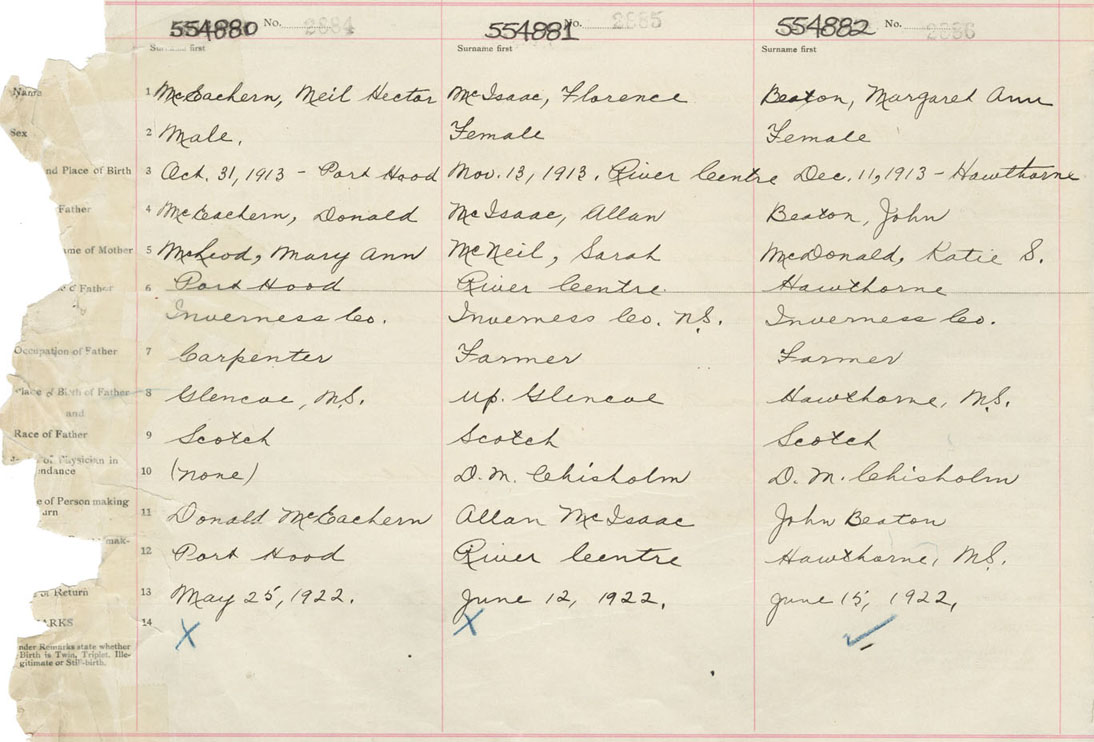 554880 No. 2884 554881 No. 2885 554882 No. 2886
Surname first Surname first Surname first
Name 1 McEachern, Neil Hector McIsaac, Florence Beaton, Margaret Ann
Sex 2 Male. Female Female
nd Place of Birth 3 Oct. 31, 1913 - Port Hood Nov. 13, 1913. River Centre Dec. 11, 1913 - Hawthorne
Father 4 McEachern, Donald McIsaac, Allan Beaton, John
ame of Mother 5 McLeod, Mary Ann McNeil, Sarah McDonald, Katie S.
Father 6 Port Hood River Centre. Hawthorne
Inverness Co. Inverness Co. N.S. Inverness Co.
Occupation of Father 7 Carpenter Farmer Farmer
Place of Birth of Father 8 Glencoe, N.S. Up. Glencoe Hawthorne, N.S.
and
Race of Father 9 Scotch Scotch Scotch
of Physician in
ndance 10 (none) D. M. Chisholm D. M. Chisholm
e of Person making
urn 11 Donald McEachern Allan McIsaac John Beaton
mak-
12 Port Hood River Centre Hawthorne, N.S.
of Return 13 May 25, 1922. June 12, 1922. June 15, 1922.
ARKS 14
X X ✓
nder Remarks state whether
Birth is Twin, Triplet, Ille-
gitimate or Still-birth.